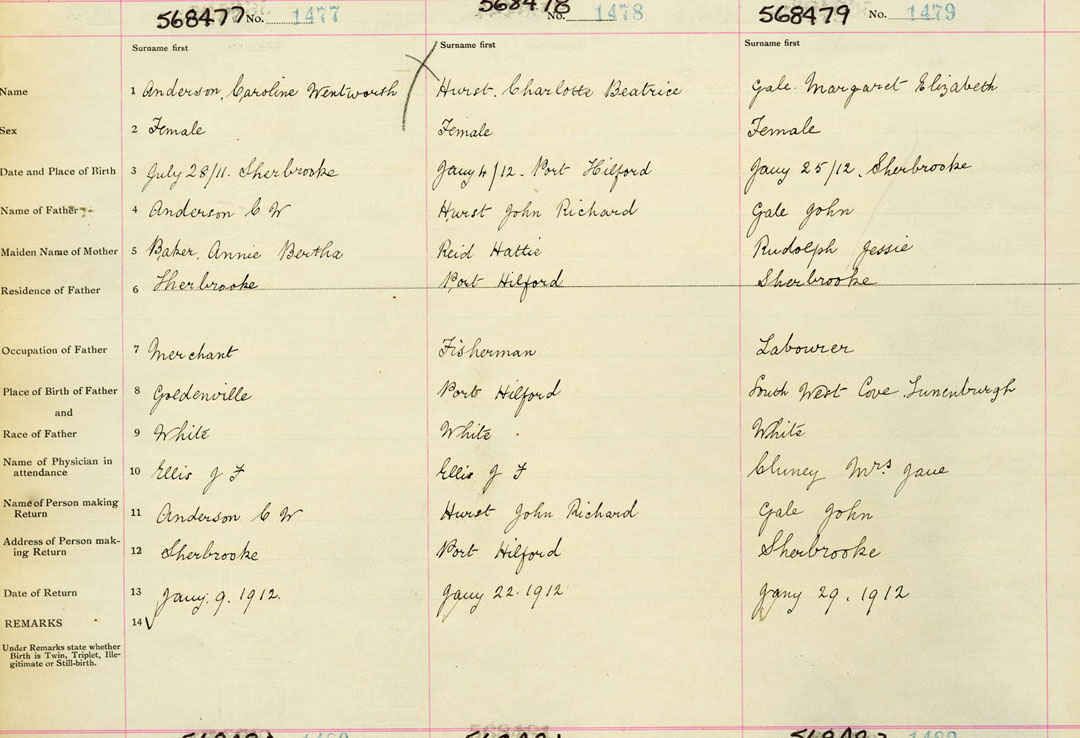 568477 No. 1477 568478 No. 1478 568479 No. 1479
Surname first Surname first Surname first
Name 1 Anderson, Caroline Wentworth Hurst. Charlotte Beatrice Gale. Margaret Elizabeth
Sex 2 Female Female Female
Date and Place of Birth 3 July 28/11. Sherbrooke Jany 4/12. Port Hilford Jany 25/12. Sherbrooke
Name of Father 4 Anderson C W Hurst John Richard Gale John
Maiden Name of Mother 5 Baker. Annie Bertha Reid Hattie Rudolph Jessie
Residence of Father 6 Sherbrooke Port Hilford Sherbrooke
Occupation of Father 7 Merchant Fisherman Labourer
Place of Birth of Father 8 Goldenville Port Hilford South West Cove. Lunenburgh
and
Race of Father 9 White White White
Name of Physician in
attendance 10 Ellis J F Ellis J F Cluney Mrs Jane
Name of Person making
Return 11 Anderson C W Hurst John Richard Gale John
Address of Person mak-
ing Return 12 Sherbrooke Port Hilford Sherbrooke
Date of Return 13 Jany. 9. 1912. Jany 22. 1912 Jany 29. 1912
REMARKS 14
Under Remarks state whether
Birth is Twin, Triplet, Ille-
gitimate or Still-birth.